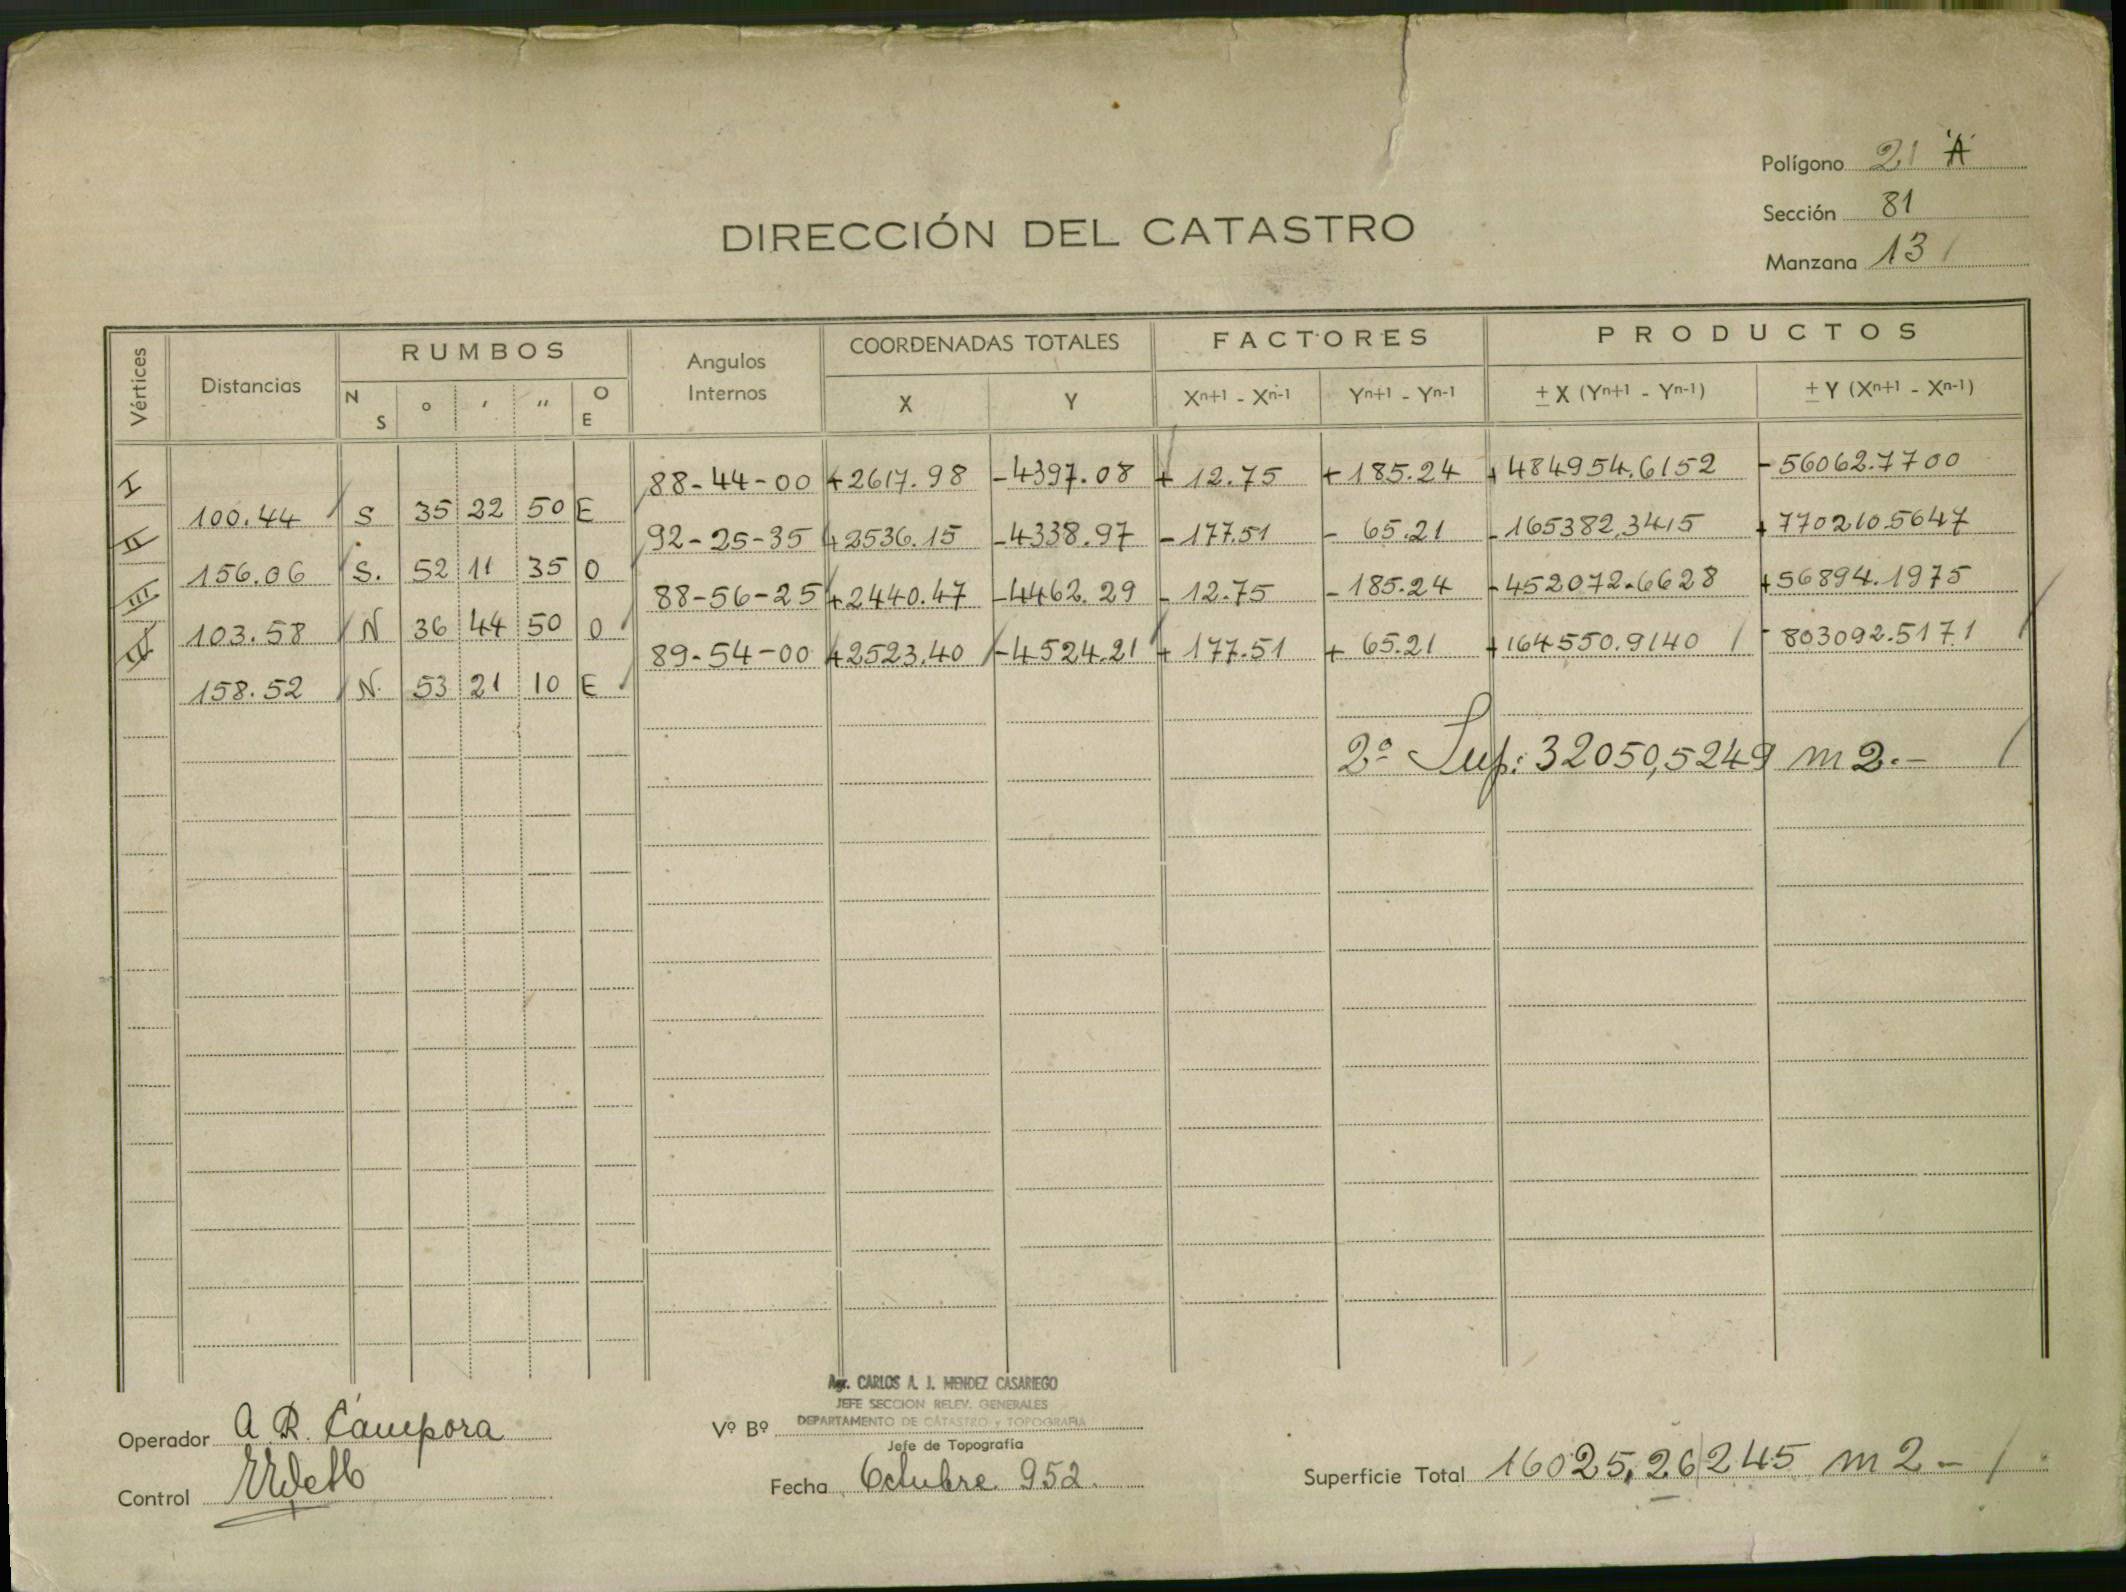 Polígono 21 "A"
Sección 81
Manzana 13
DIRECCIÓN DEL CATASTRO
Vértices Distancias RUMBOS Angulos Internos COORDENADAS TOTALES FACTORES PRODUCTOS
N S o ' " O E X Y Xn+1 - Xn-1 Yn+1 - Yn-1 ± X (Yn+1 - Yn-1) ± Y (Xn+1 - Xn-1)
I 88-44-00 +2617.98 -4397.08 + 12.75 + 185.24 +484954.6152 -56062.7700
100.44 S 35 22 50 E
II 92-25-35 +2536.15 -4338.97 - 177.51 - 65.21 -165382.3415 +770210.5647
156.06 S. 52 11 35 O
III 88-56-25 +2440.47 -4462.29 - 12.75 - 185.24 -452072.6628 +56894.1975
103.58 N 36 44 50 O
IV 89-54-00 +2523.40 -4524.21 + 177.51 + 65.21 +164550.9140 -803092.5171
158.52 N. 53 21 10 E
2ª Sup: 32050,5249 m2.-
Agr. CARLOS A. J. MENDEZ CASARIEGO
JEFE SECCION RELEV. GENERALES
DEPARTAMENTO DE CATASTRO y TOPOGRAFIA
Operador A. R. Cámpora
Vº Bº
Jefe de Topografía
Control
Fecha Octubre 952.
Superficie Total 16025,26245 m2.-